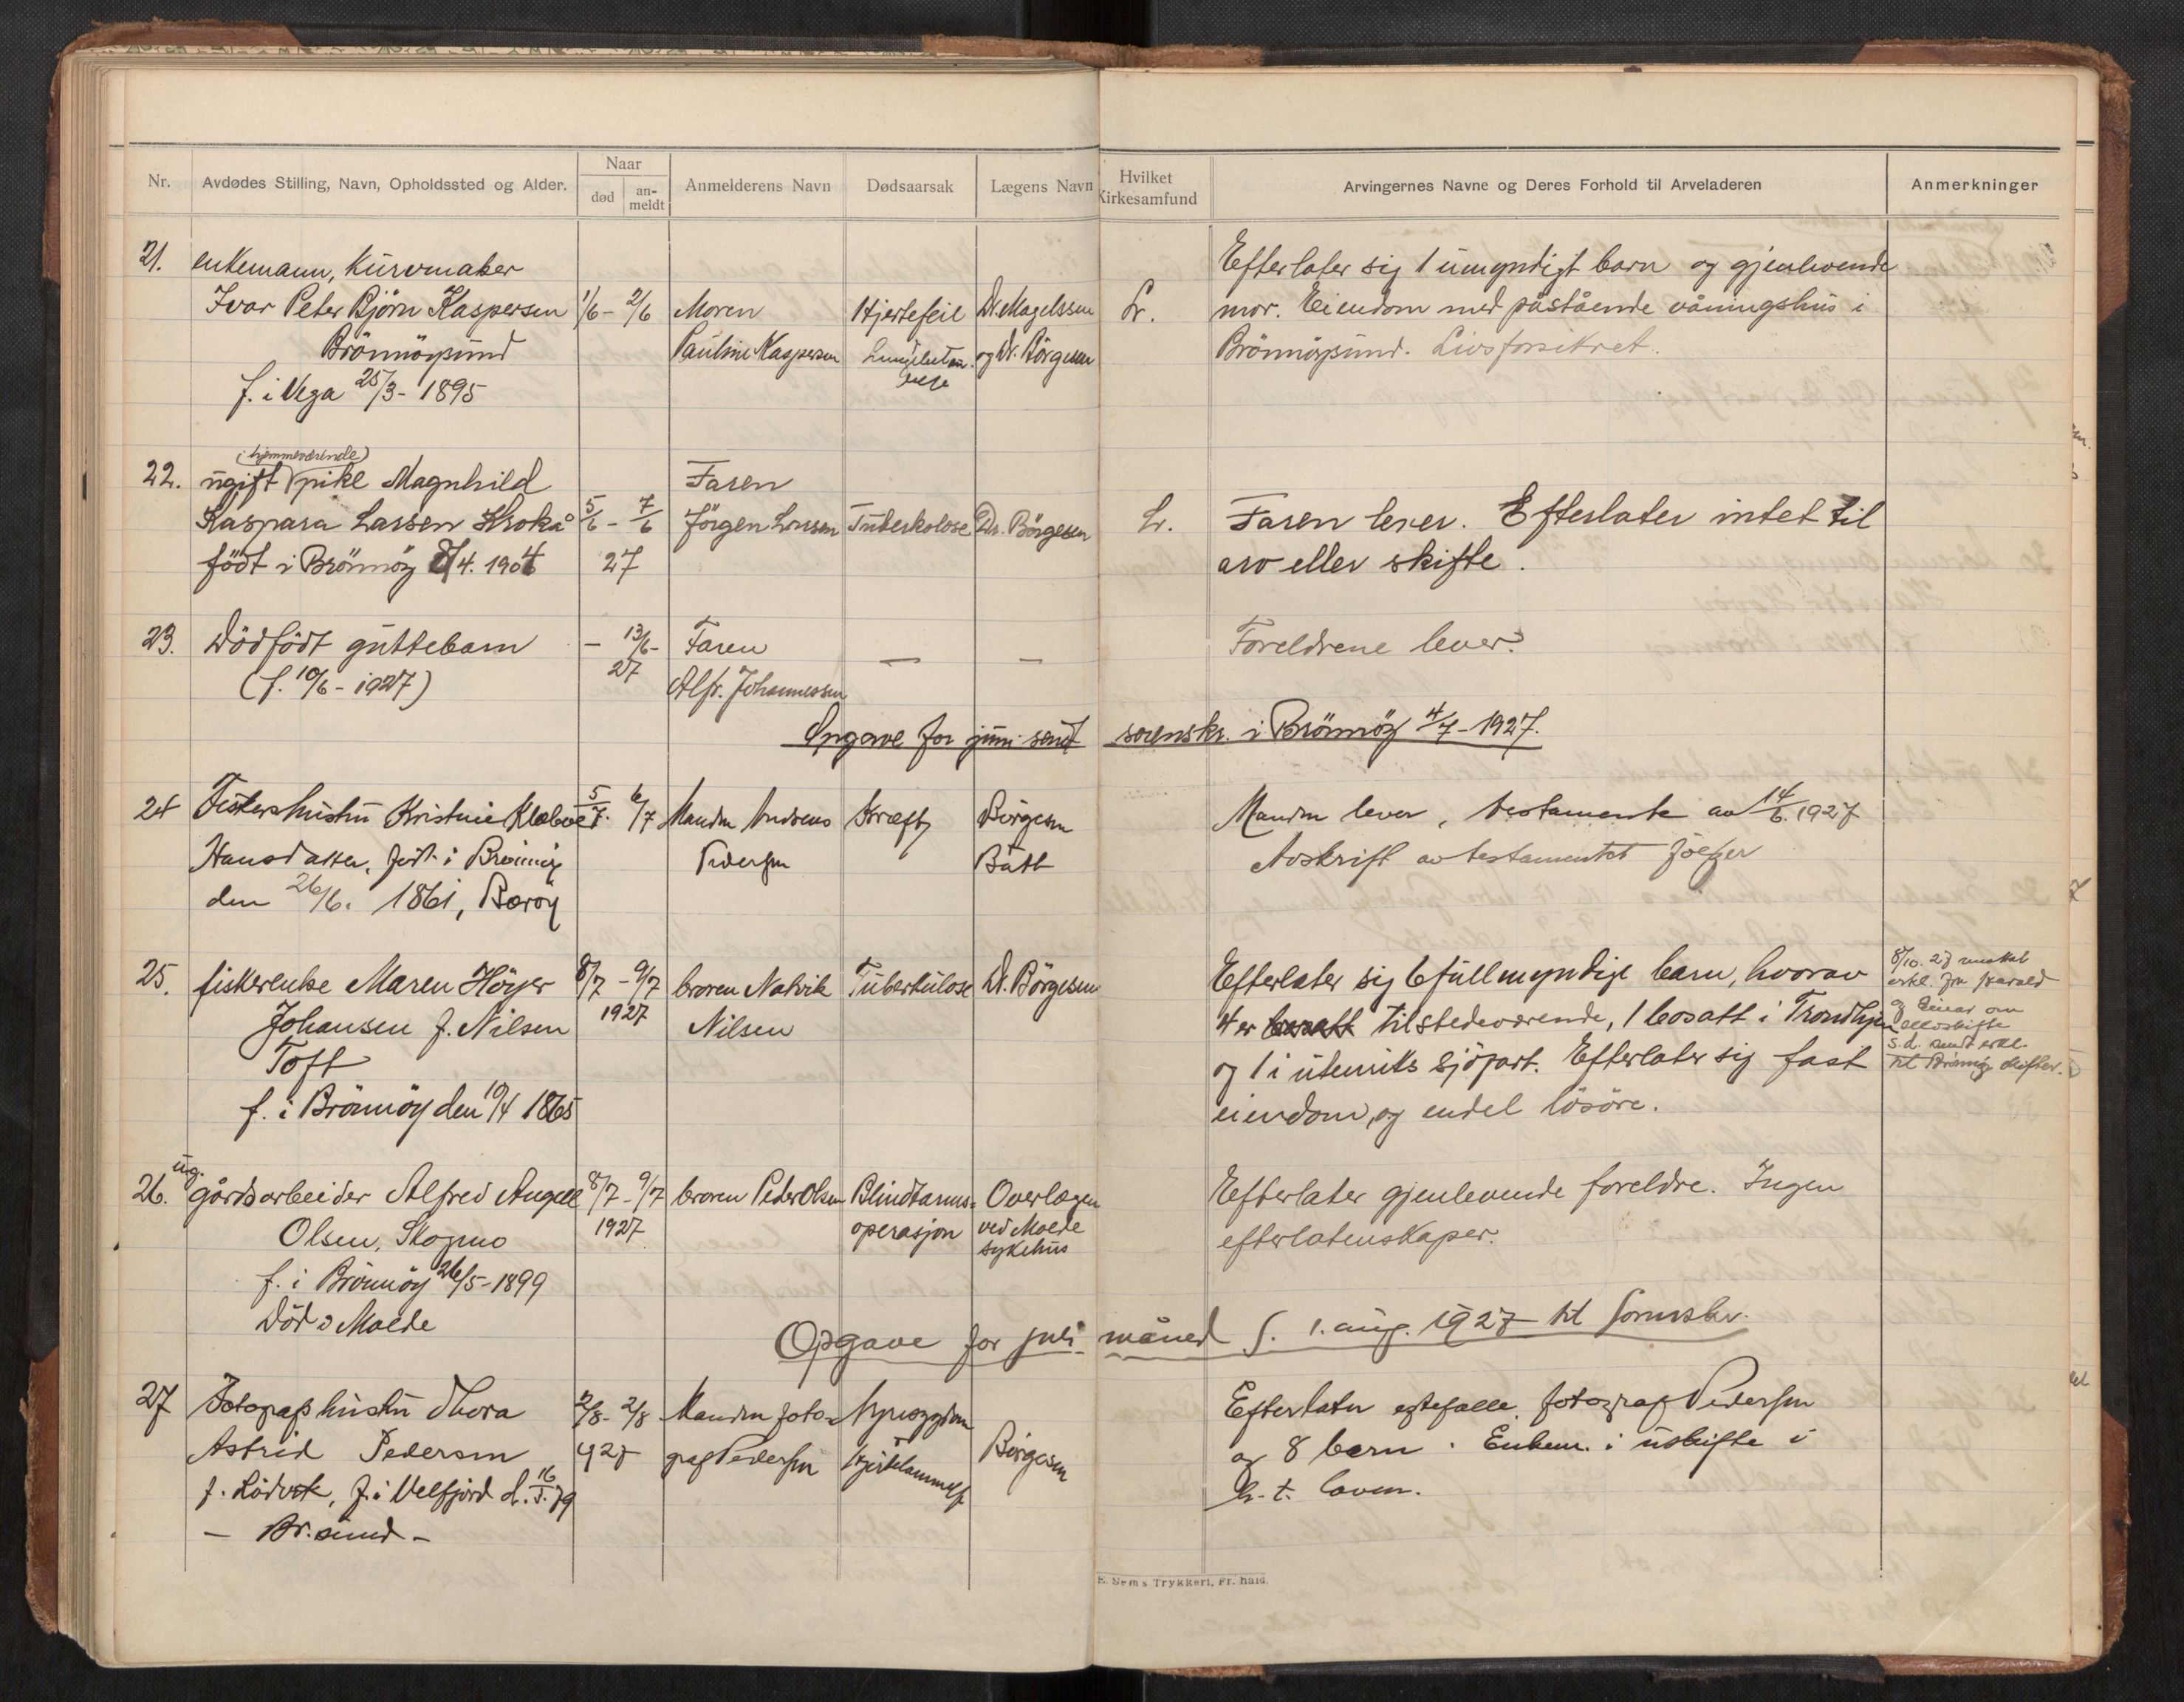 Nr.
Avdødes Stilling, Navn, Opholdssted og Alder.
Naar
død
an-
meldt
Anmelderens Navn
Dødsaarsak
Lægens Navn
Hvilket
Kirkesamfund
Arvingernes Navne og Deres Forhold til Arveladeren
Anmerkninger
21. enkemann, Kurvmaker
Ivar Peter Björn Kaspersen
Brönnöysund
f. i Vega 25/3 - 1895
1/6 - 2/6
Moren
Pauline Kaspersen
Hjertefeil
Dr. Magelssen
og Dr. Börgesen
L.
Efterlater sig 1 umyndigt barn og gjenlevende
mor. Eiendom med påstående våningshus i
Brönnöysund. Livsforsikret.
22. ugift (hjemmeværende) pike Magnhild
Kaspara Larsen Krokå
födt i Brönnöy 8/4. 1904
5/6 - 7/6
27
Faren
Jörgen Larsen
Tuberkolose
Dr. Börgesen
L.
Faren lever. Efterlater intet til
arv eller skifte.
23. Dödfödt guttebarn
(f. 10/6 - 1927)
- 13/6 -
27
Faren
Alfr. Johannessen
—
—
Foreldrene lever.
Opgave for juni sendt sorenskr. i Brönnöy 4/7 - 1927.
24 Fiskershustru Kristine Klæboe
Hansdatter, födt i Brönnöy
den 26/6. 1861, Bærøy
5/7. 6/7
Manden Andreas
Pedersen
Kræft
Børgesen
Bått
Manden lever, testamente av 14/6. 1927
Avskrift av testamentet følger
25. fiskerenke Maren Höyer
Johansen f. Nilsen
Toft
f. i Brönnöy den 10/4 1865
8/7 - 9/7
1927
broren Natvik
Nilsen
Tuberkulose
Dr. Börgesen
Efterlater sig 6 fullmyndige barn, hvorav
4 er bosatt tilstedeværende, 1 bosatt i Trondhjem
og 1 i utenriks sjöfart. Efterlater sig fast
eiendom, og endel lösöre.
8/10. 27
erkl. fra Harald
og Einar om
s.d. sendt erkl.
til Brønnøy skifter.
26. ug. gårdsarbeider Alfred Angell
Olsen, Skogmo
f. i Brönnöy 26/5 - 1899
död i Molde
8/7 - 9/7
1927
broren Peder Olsen
Blindtarms-
operasjon
Overlægen
ved Molde
sykehus
Efterlater gjenlevende foreldre. Ingen
efterlatenskaper.
Opgave for juli måned s. 1. aug. 1927 til sorenskr.
27 Fotografhustru Thora
Astrid Pedersen
f. Lödvek, f. i Velfjord d. 16/5. 79
- Br.sund -
2/8 - 2/8
927
Manden foto-
graf Pedersen
Hjertelammelse
Børgesen
Efterlater egtefelle fotograf Pedersen
og 8 barn. Enkem. i uskifte i
h. t. loven.
E. Sem's Trykkeri, Fr.hald.